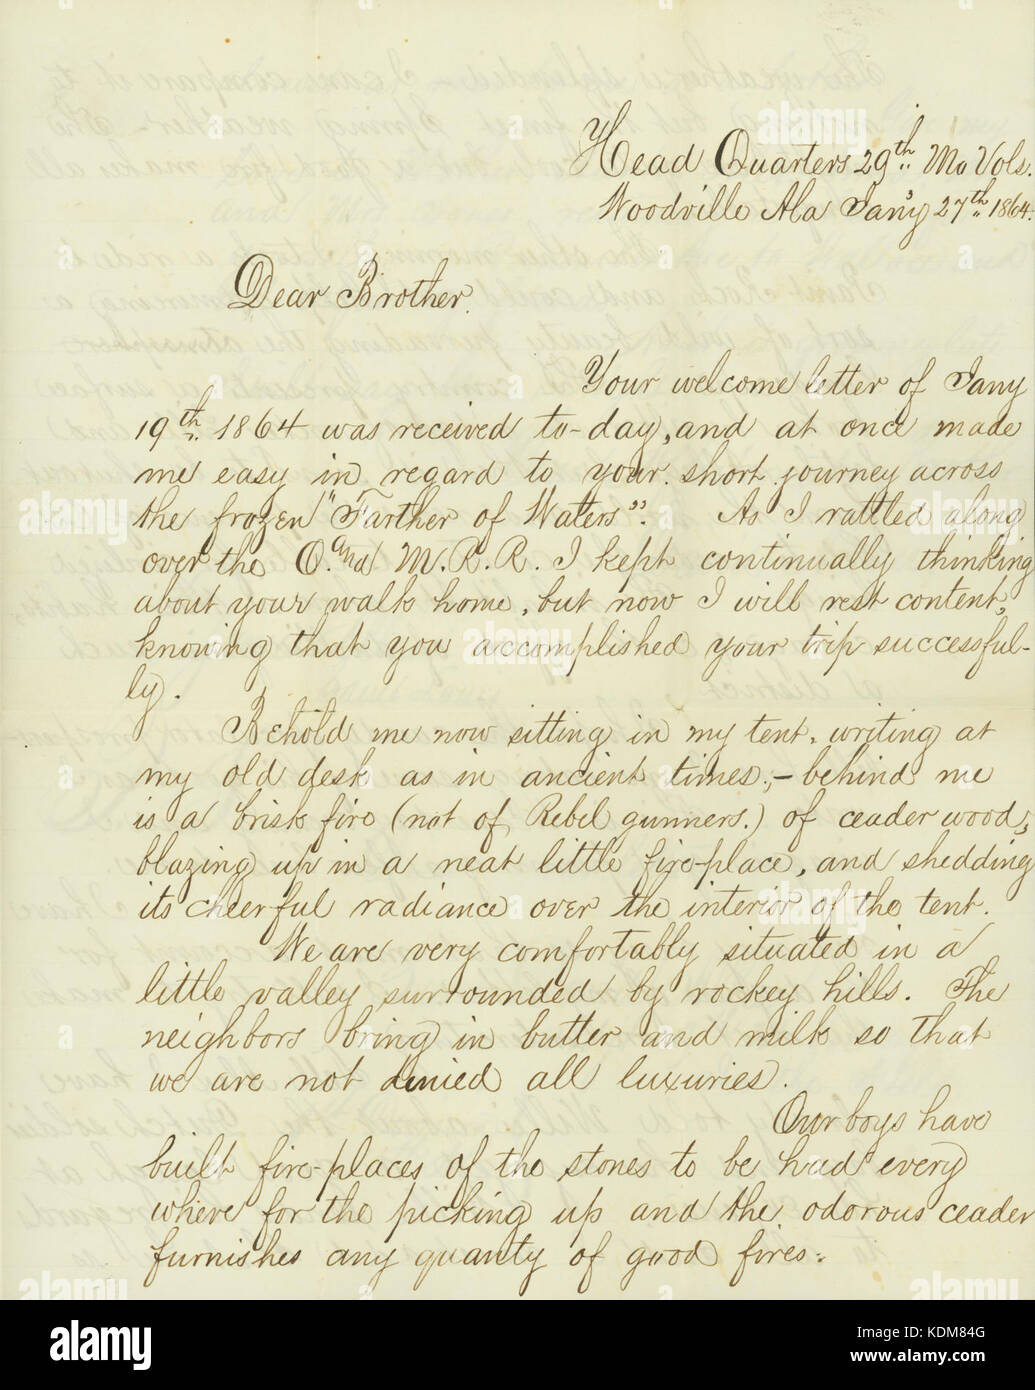 Head Quarters 29th Mo Vols.
Woodville Ala Jany 27th 1864.
Dear Brother.
Your welcome letter of Jany
19th 1864 was received to-day, and at once made
me easy in regard to your short journey across
the frozen "Farther of Waters". As I rattled along
over the O. and M. R. R. I kept continually thinking
about your walk home, but now I will rest content,
knowing that you accomplished your trip successful-
ly.
Behold me now sitting in my tent, writing at
my old desk as in ancient times;- behind me
is a brisk fire (not of Rebel gunners.) of ceader wood,
blazing up in a neat little fire-place, and shedding
its cheerful radiance over the interior of the tent.
We are very comfortably situated in a
little valley surrounded by rockey hills. The
neighbors bring in butter and milk so that
we are not denied all luxuries.
Our boys have
built fire-places of the stones to be had every
where for the picking up and the odorous ceader
furnishes any quanty of good fires.
alamy
Image ID: KDM84G
www.alamy.com